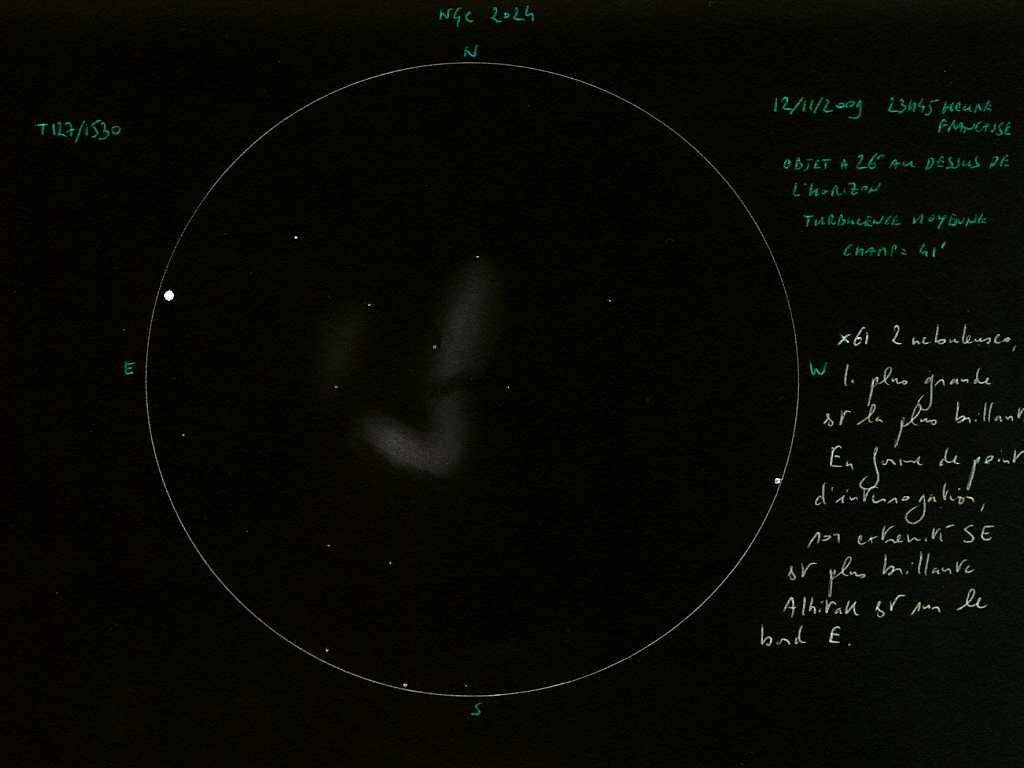 NGC 2024
N
T127/1530
12/11/2009 23H45 HEURE
FRANCAISE
OBJET A 26° AU DESSUS DE
L'HORIZON
TURBULENCE MOYENNE
CHAMP = 41'
E
W
S
x61 2 nebuleuses,
la plus grande
est la plus brillante
En forme de point
d'interrogation,
son extremité SE
est plus brillante
Alnitak est sur le
bord E.